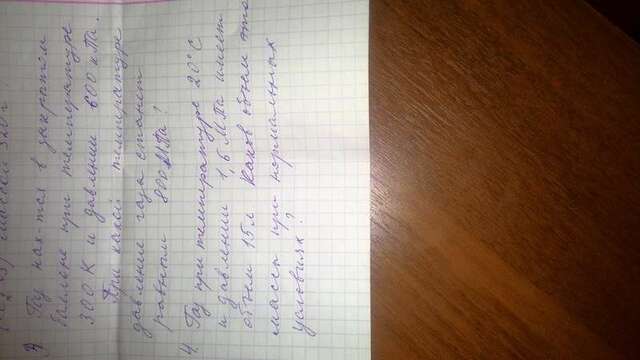 массой 320 г.
3. Газ нах-тся в закрытом
баллоне при температуре
300 К и давлении 600 кПа.
При какой температуре
давление газа станет
равным 800 кПа?
4. Газ при температуре 20°С
и давлении 1,6 МПа имеет
объем 15 л Каков объем этой
массы при нормальных
условиях?